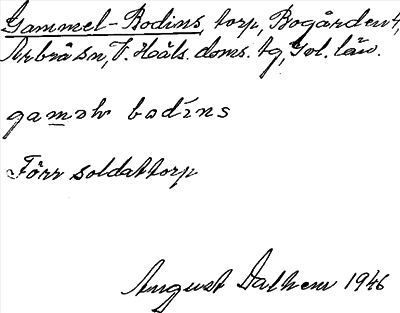 Gammel-Bodins, torp, Bogården 4,
Arbrå sn, V. Häls. doms. tg, Gvl. län.
gaməl bodins
Förr soldattorp
August Dalhem 1946